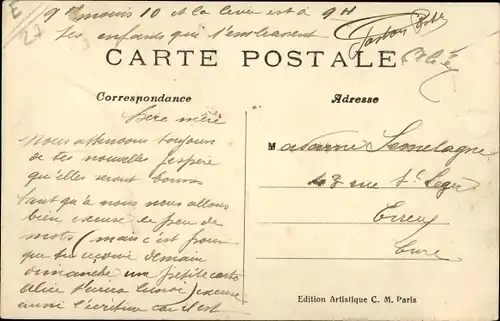 9h moins 10 et la levée est à 9H
Les enfants qui t'embrassent
CARTE POSTALE
Correspondance
Adresse
Chère mère
Nous attendons toujours
de tes nouvelles j'espère
qu'elles seront bonnes
tant qu'à nous nous allons
bien excuse le peu de
mots (mais c'est pour
que tu reçoive demain
dimanche une petite carte
Alice excuse
aussi l'écriture car il est
Madame
3 rue St Leger
Evreux
Eure
Edition Artistique C. M. Paris